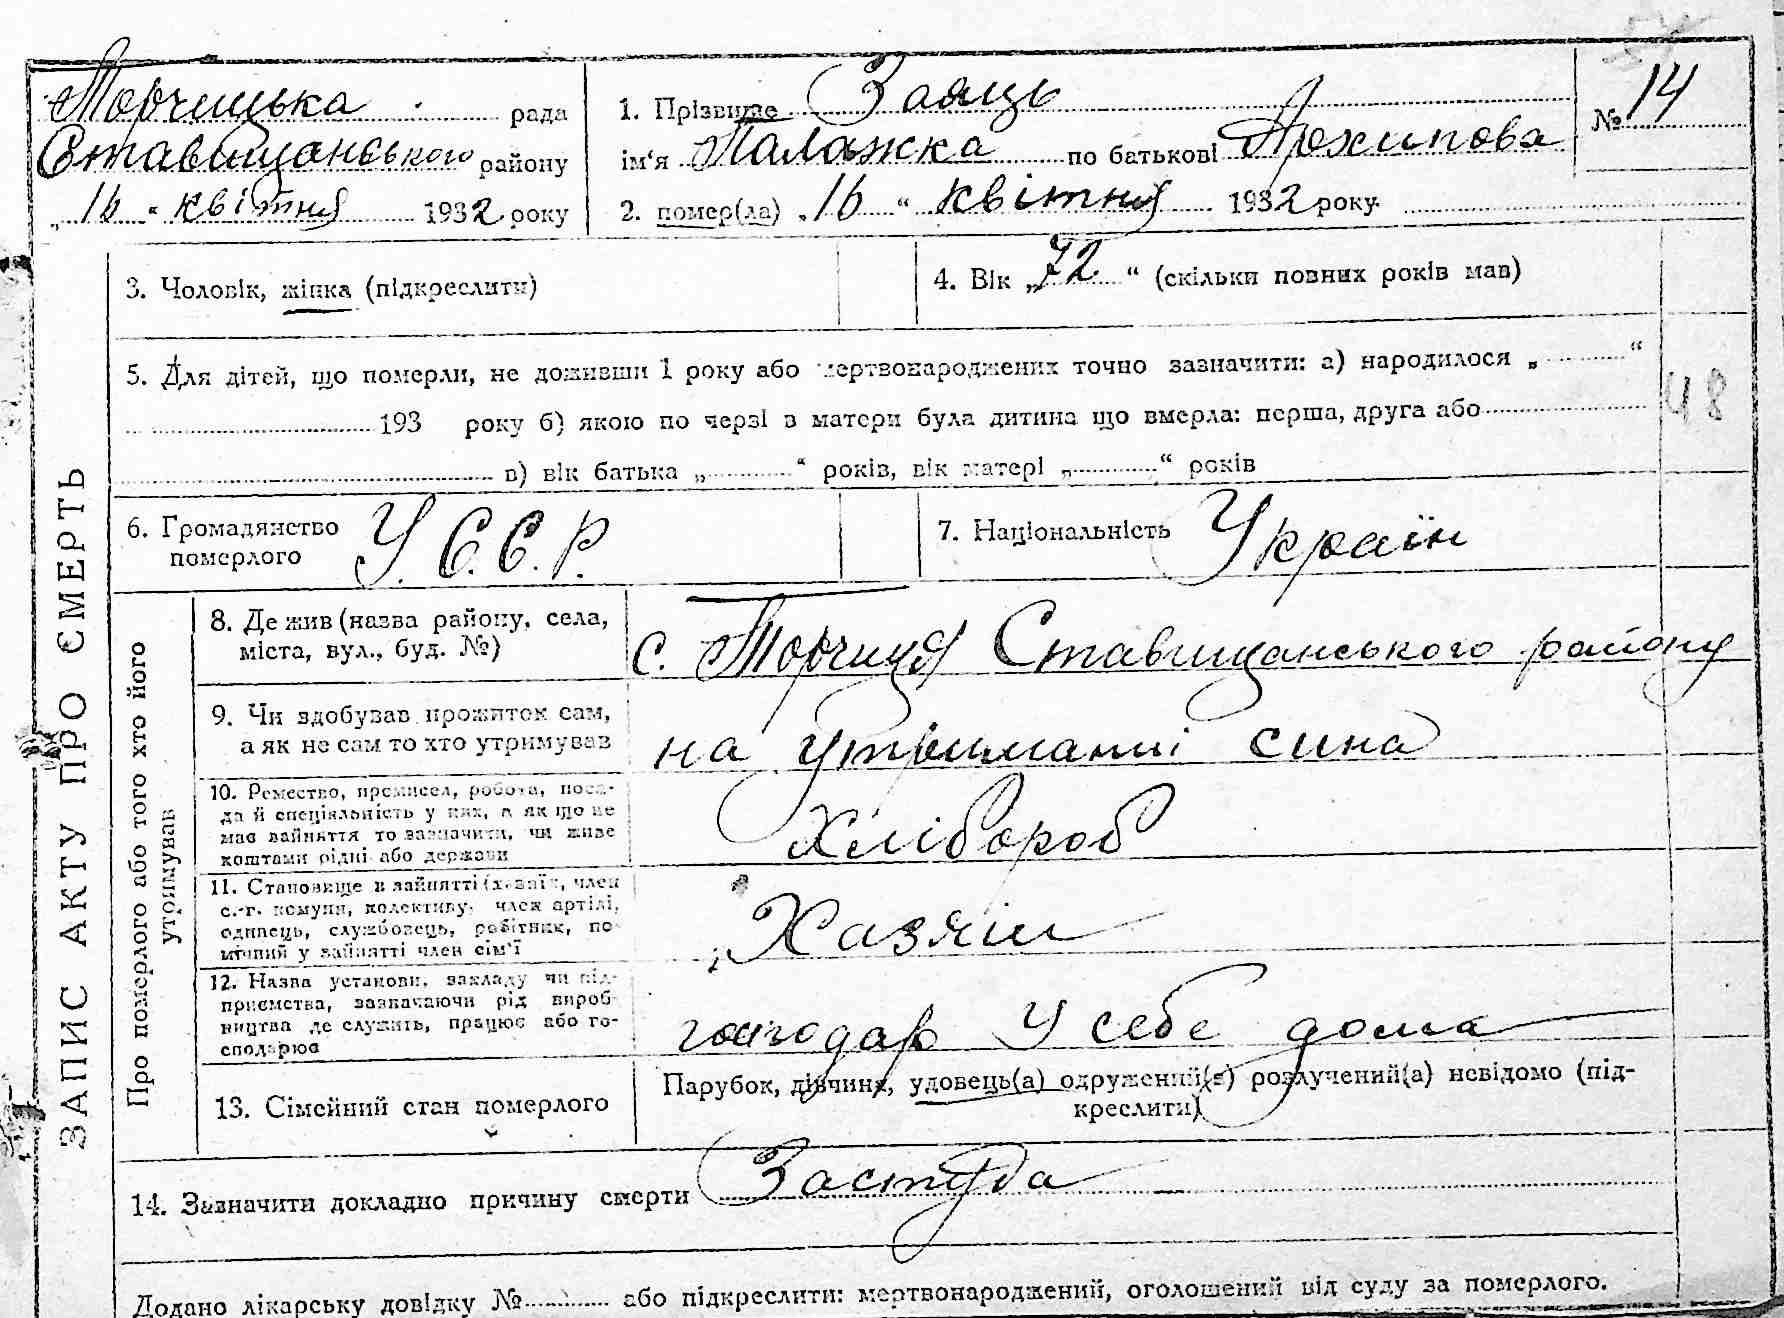 Торчицька рада
Ставищанського району
„16“ квітня 1932 року
1. Прізвище Заяць
ім'я Палажка по батькові Архипова
2. помер(ла) „16“ квітня 1932 року
№ 14
3. Чоловік, жінка (підкреслити)
4. Вік „72“ (скільки повних років мав)
5. Для дітей, що померли, не доживши 1 року або мертвонароджених точно зазначити: а) народилося „ “
193 року б) якою по черзі в матери була дитина що вмерла: перша, друга або
в) вік батька „ “ років, вік матері „ “ років
48
6. Громадянство
померлого
У.С.С.Р.
7. Національність Україн
ЗАПИС АКТУ ПРО СМЕРТЬ
Про померлого або того хто його
утримував
8. Де жив (назва району, села,
міста, вул., буд. №)
с. Торчиця Ставищанського району
9. Чи здобував прожиток сам,
а як не сам то хто утримував
на утриманні сина
10. Ремество, промисел, робота, поса-
да й спеціяльність у них, а як що не
має зайняття то зазначити, чи живе
коштами рідні або держави
Хлібороб
11. Становище в зайнятті (хазяїн, член
с.-г. комуни, колективу, член артілі,
одинець, службовець, робітник, по-
мічний у зайнятті член сім'ї
Хазяін
12. Назва установи, закладу чи під-
приємства, зазначаючи рід вироб-
ництва де служить, працює або го-
сподарює
господар У себе дома
13. Сімейний стан померлого
Парубок, дівчина, удовець(а) одружений(а) розлучений(а) невідомо (під-
креслити)
14. Зазначити докладно причину смерти Застуда
Додано лікарську довідку № або підкреслити: мертвонароджений, оголошений від суду за померлого.